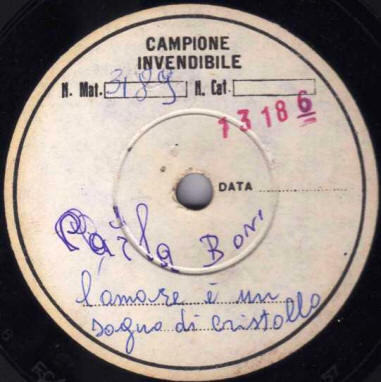 CAMPIONE
INVENDIBILE
N. Mat. 3189 N. Cat.
13186
DATA
Carla Boni
l'amore è un
sogno di cristallo